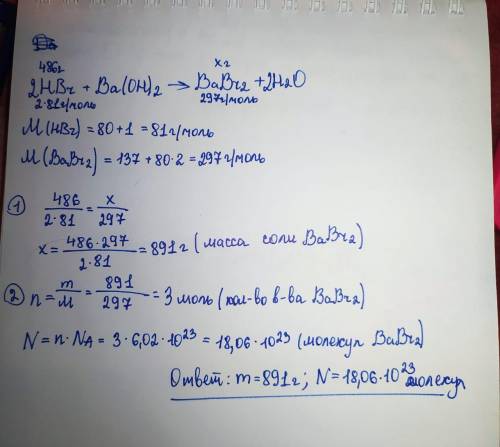 486г хг
2HBr + Ba(OH)₂ → BaBr₂ + 2H₂O
2·81г/моль 297г/моль
M(HBr) = 80+1 = 81г/моль
M(BaBr₂) = 137 + 80·2 = 297г/моль
① 486/2·81 = x/297
x = 486·297/2·81 = 891г (масса соли BaBr₂)
② n = m/M = 891/297 = 3 моль (кол-во в-ва BaBr₂)
N = n·NA = 3·6,02·10²³ = 18,06·10²³ (молекул BaBr₂)
Ответ: m=891г; N=18,06·10²³ молекул